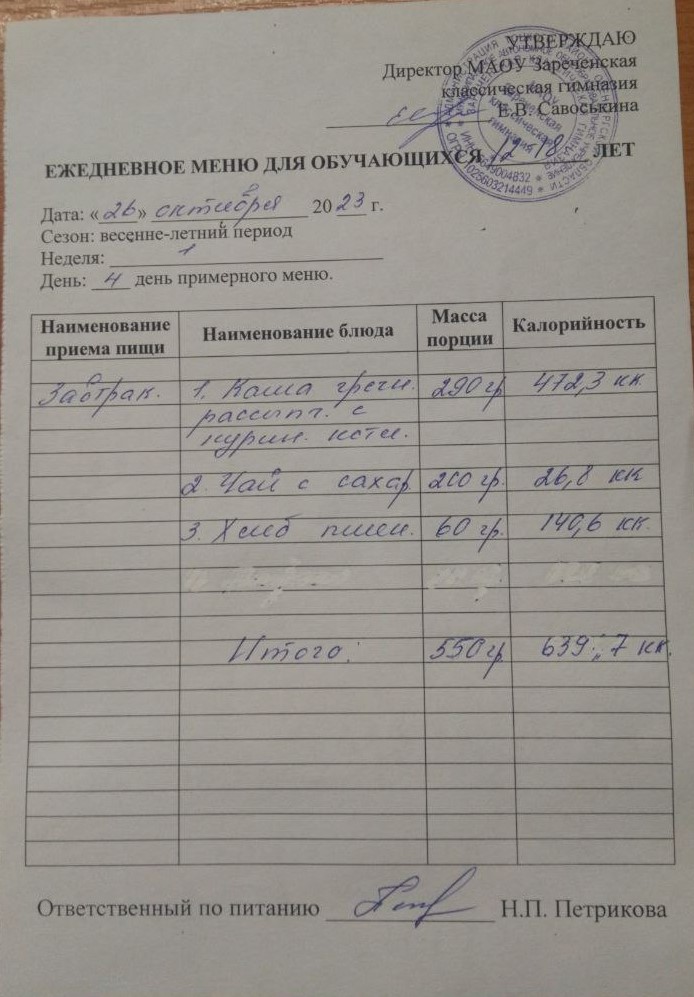 УТВЕРЖДАЮ
Директор МАОУ Зареченская
классическая гимназия
Е.В. Савоськина
ЕЖЕДНЕВНОЕ МЕНЮ ДЛЯ ОБУЧАЮЩИХСЯ 12-18 ЛЕТ
Дата: «26» октября 2023 г.
Сезон: весенне-летний период
Неделя: 1
День: 4 день примерного меню.
Наименование приема пищи Наименование блюда Масса порции Калорийность
Завтрак. 1. Каша гречн. 290 гр 472,3 кк.
рассыпч. с
курин. котл.
2. Чай с сахар 200 гр. 26,8 кк
3. Хлеб пшен. 60 гр. 140,6 кк.
Итого: 550 гр. 639,7 кк.
Ответственный по питанию Н.П. Петрикова